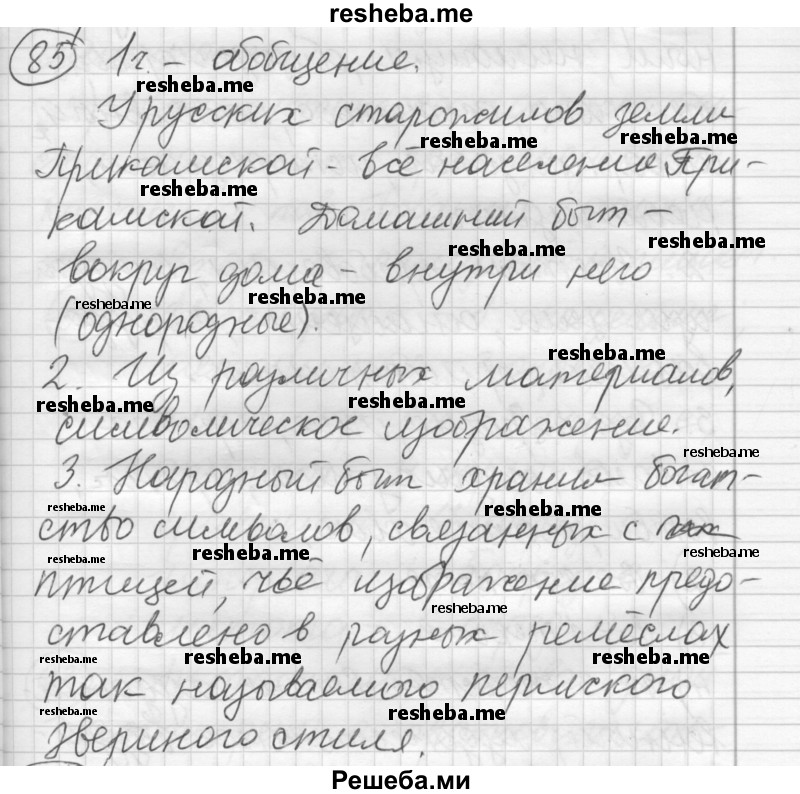 resheba.me
85 1г. - обобщение.
resheba.me
У русских старожилов земли
resheba.me resheba.me
Прикамской - всё население При-
resheba.me
камской. Домашний быт -
resheba.me resheba.me
вокруг дома - внутри него
resheba.me resheba.me
(однородные).
resheba.me
2. Из различных материалов,
resheba.me resheba.me
символическое изображение.
resheba.me
3. Народный быт хранил богат-
resheba.me resheba.me
ство символов, связанных с
resheba.me resheba.me resheba.me
птицей, чьё изображение предо-
resheba.me
ставлено в разных ремёслах
resheba.me resheba.me resheba.me
так называемого пермского
resheba.me resheba.me
звериного стиля.
Решеба.ми